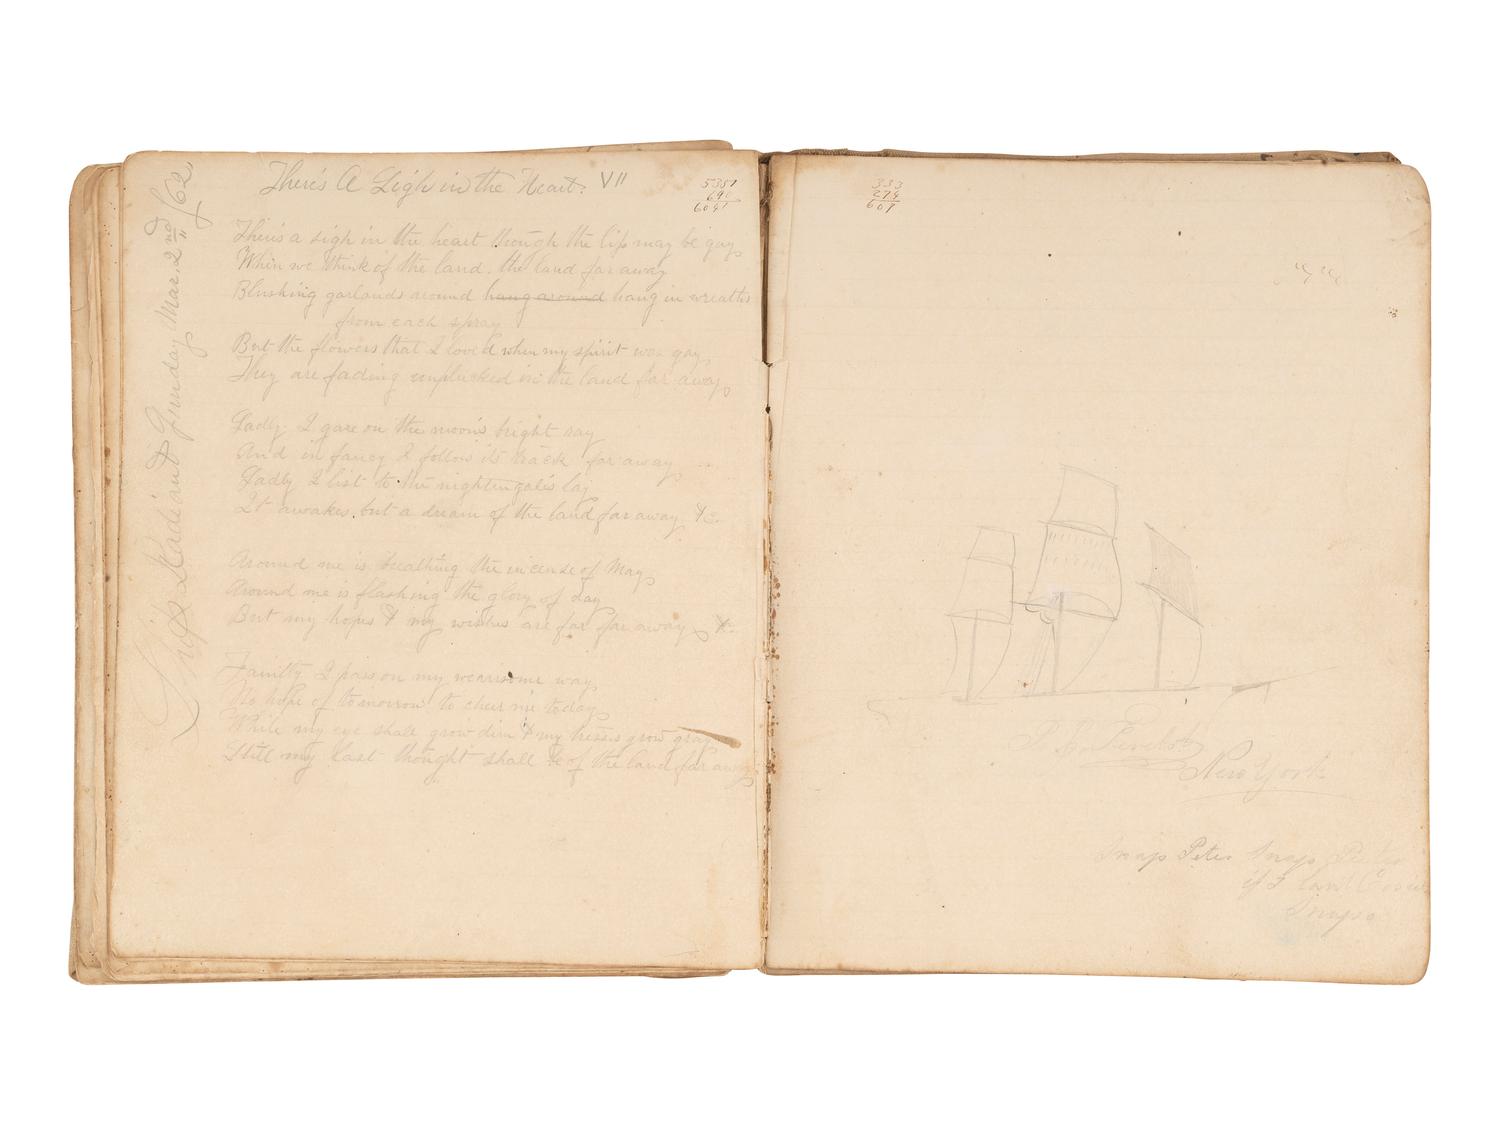 There's A Sigh in the Heart. VII
5351
690
6041
There's a sigh in the heart though the lip may be gay
When we think of the land, the land far away
Blushing garlands around hang around hang in wreaths
from each spray
But the flowers that I loved when my spirit was gay
They are fading unplucked in the land far away
Sadly I gaze on the moon's bright ray
And in fancy I follow its track far away
Sadly I list to the nightengale's lay
It awakes but a dream of the land far away &c.
Around me is breathing the incense of May
Around me is flashing the glory of day
But my hopes & my wishes are far far away &c.
Faintly I pass on my wearisome way
No hope of tomorrow to cheer me today
While my eye shall grow dim & my tresses grow gray
Still my last thought shall be of the land far away
Ship Radiant Sunday Mar. 2nd /62
333
274
607
New York
Snap Peter Snap Peter
if I can't
Snaps